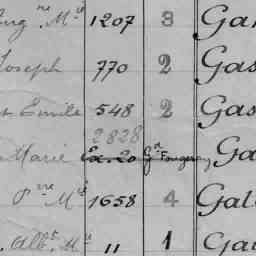 Aug ne Mie 1207 3 Gar
Joseph 770 2 Gas
Emile 548 2 Gas
2828
Marie Ex. 20 Gd Fougeray Ga
P re Mie 1658 4 Gal
Albt. Mie 11 1 Gau